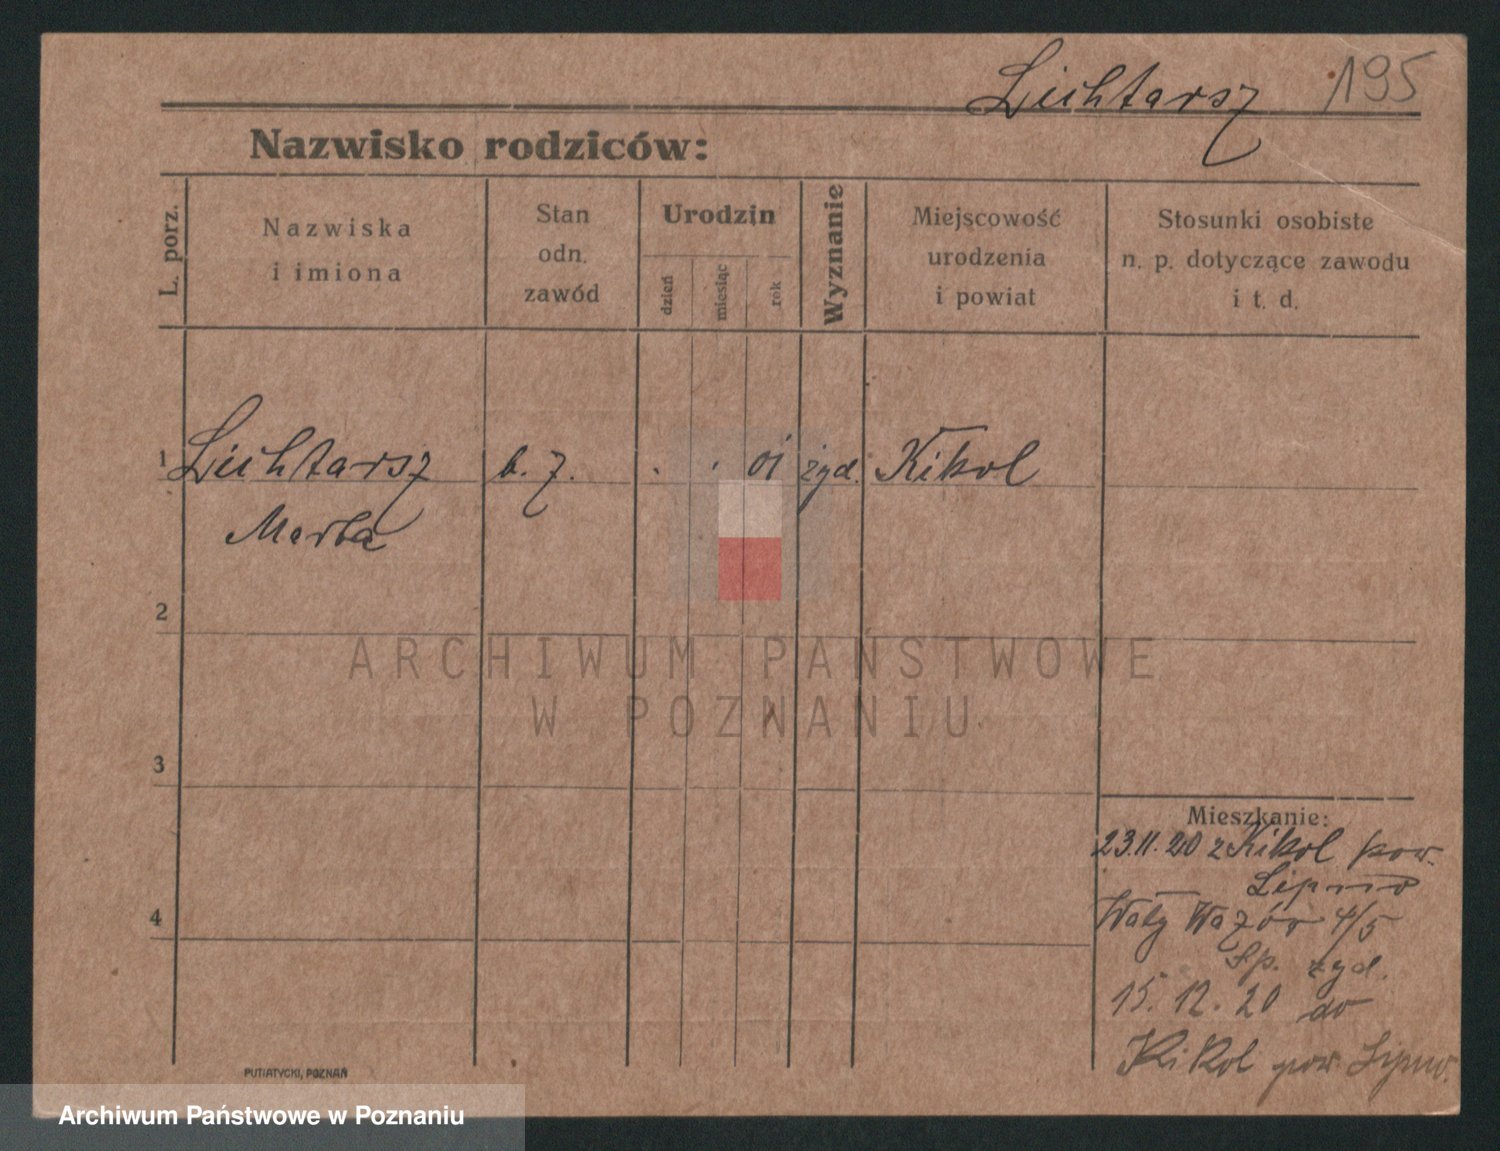 Lichtarsz 195
Nazwisko rodziców:
L. porz.
Nazwiska
i imiona
Stan
odn.
zawód
Urodzin
dzień
miesiąc
rok
Wyznanie
Miejscowość
urodzenia
i powiat
Stosunki osobiste
n. p. dotyczące zawodu
i t. d.
1 Lichtarsz b. z. . . 01 żyd. Kikol
Marta
2
ARCHIWUM PAŃSTWOWE
W POZNANIU
3
Mieszkanie:
23.11.20 z Kikol pow.
Lipno
4
Wały Wazów 4/5
żyd.
15.12.20 do
Kikol pow. Lipno.
PUTIATYCKI, POZNAŃ
Archiwum Państwowe w Poznaniu